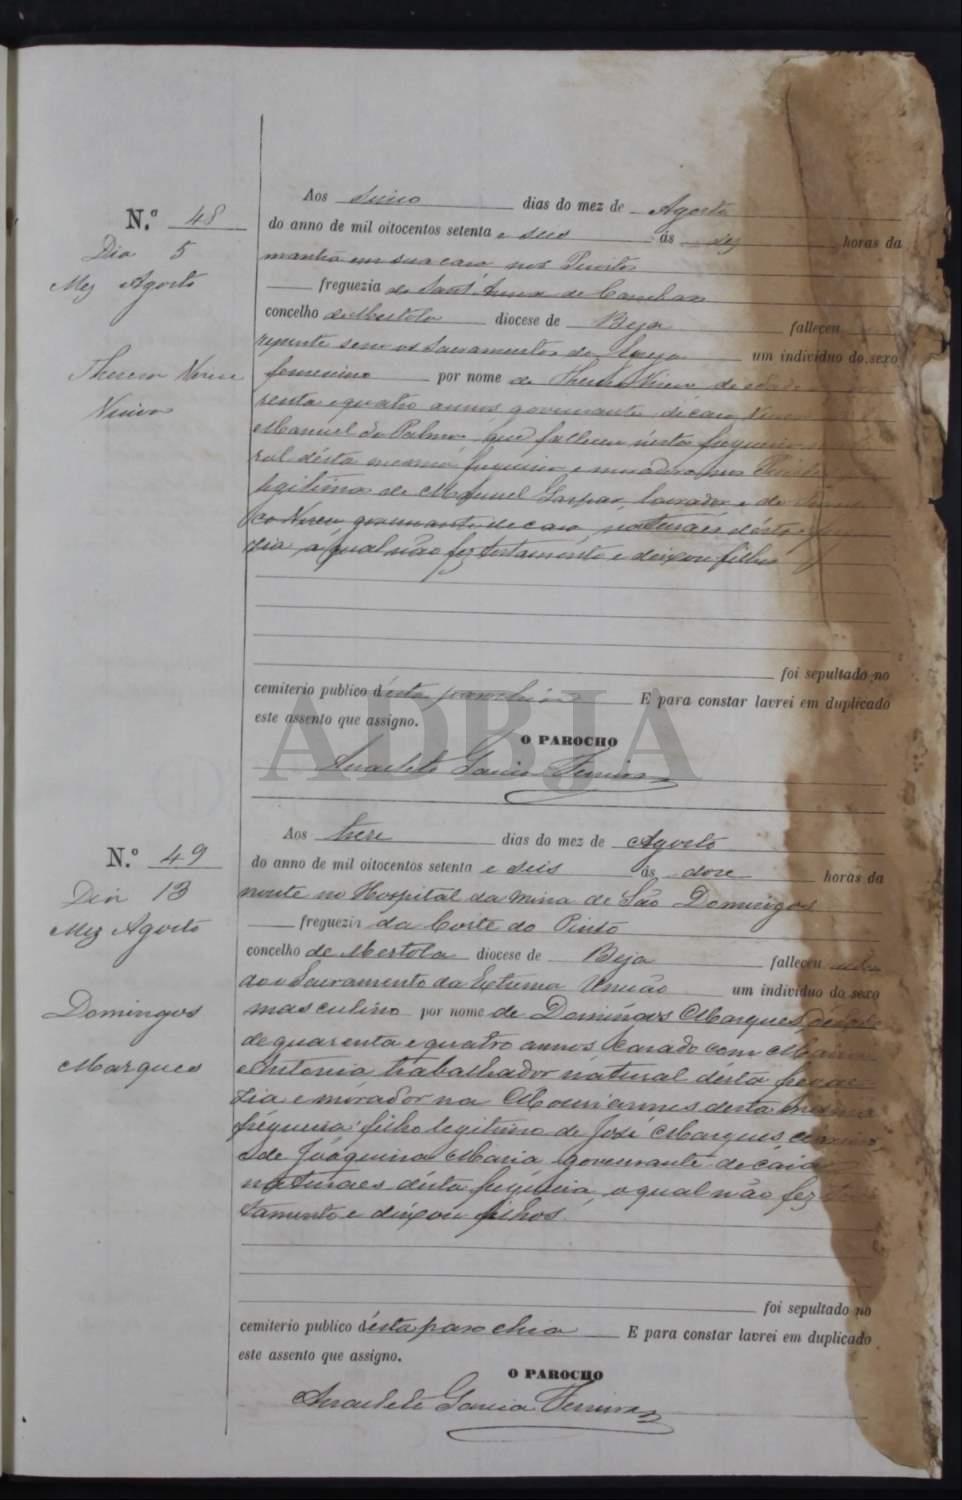 Aos cinco dias do mez de Agosto
N.º 48
do anno de mil oitocentos setenta e seis ás dez horas da
Dia 5
manhã em sua casa nos
Mez Agosto
freguezia de Sant'Anna de Cambas
concelho de Mertola diocese de Beja falleceu
repente sem os Sacramentos da Igreja um individuo do sexo
Thereza
femenino por nome de Thereza de edade
Viuva
senta e quatro annos governante de casa Viuva
Manuel da Palma que falleceu n'esta freguezia
ral désta mesma freguezia e moradora nos
legitima de Manuel Gaspar, lavrador e de
governante de casa naturáes désta
zia a qual não fez testamento e deixou filhos
foi sepultado no
cemiterio publico désta parochia E para constar lavrei em duplicado
este assento que assigno.
O PAROCHO
Anacleto Garcia Ferreira
ADBJA
Aos treze dias do mez de Agosto
N.º 49
do anno de mil oitocentos setenta e seis ás doze horas da
Dia 13
noute no Hospital da mina de São Domingos
Mez Agosto
freguezia da Corte do Pinto
concelho de Mertola diocese de Beja falleceu
do o Sacramento da Extrema Unção um individuo do sexo
Domingos
masculino por nome de Domingos Marques
de quarenta e quatro annos Casado com Maria
Marques
Antonia trabalhador natural désta fregue
zia e morador na desta mesma
fréguezia filho legitimo de José Marques
e de Joáquina Maria governante de cása
naturaes désta freguezia o qual não fez tes
tamento e deixou filhos.
foi sepultado no
cemiterio publico désta parochia E para constar lavrei em duplicado
este assento que assigno.
O PAROCHO
Anacleto Garcia Ferreira